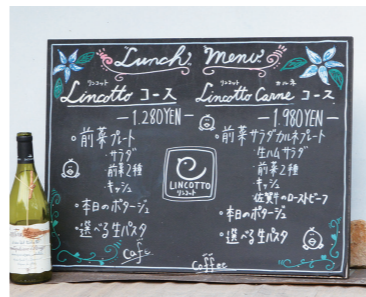 Lunch Menu
リンコット
Lincotto コース
—1.280YEN—
・前菜プレート
・サラダ
・前菜2種
・キッシュ
・本日のポタージュ
・選べる生パスタ
Cafe
リンコット カルネ
Lincotto Carne コース
—1.980YEN—
・前菜サラダカルネプレート
・生ハムサラダ
・前菜2種
・キッシュ
・佐賀牛のローストビーフ
・本日のポタージュ
・選べる生パスタ
Coffee
LINCOTTO
リンコット